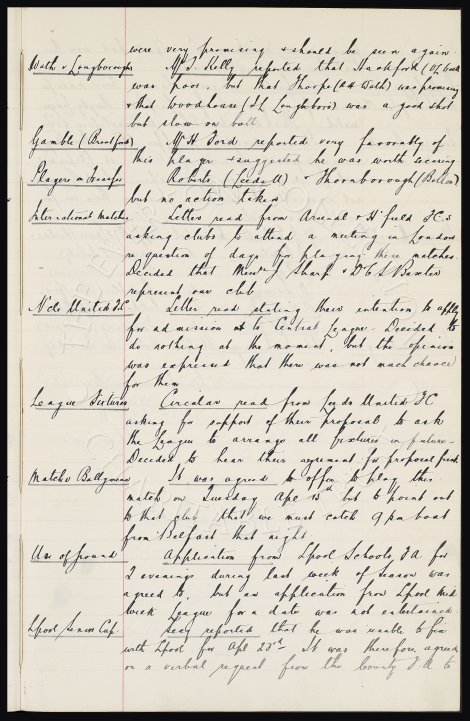 were very promising & should be seen again
Bath v Loughborough Mr J. Kelly reported that Hackford (OL
was poor, but that Thorpe (RH Bath) was promising
& that Woodhouse (IL Loughboro) was a good shot
but slow on ball
Gamble (Brentford) Mr H Ford reported very favorably of
this player & suggested he was worth securing
Players on Transfer Roberts (Leeds U) & Thornborough (Bolton)
but no action taken
International Matches Letters read from Arsenal & H'field FCs
asking clubs to attend a meeting in London
re question of days for playing these matches.
Decided that Messrs J Sharp & Dr C S Baxter
represent our club
N'cle United FC Letter read stating their intention to apply
for admission to Central League. Decided to
do nothing at the moment, but the opinion
was expressed that there was not much chance
for them
League Fixtures Circular read from Leeds United FC
asking for support of their proposal to ask
the League to arrange all fixtures in future.
Decided to hear their agreement for proposal first
Match v Ballymena It was agreed to offer to play this
match on Tuesday Apl but to point out
to that club that we must catch 9 pm boat
from Belfast that night
Use of ground Application from Lpool Schools FA for
2 evenings during last week of season was
agreed to, but an application from Lpool Mid
week League for a date was not entertained
Lpool Senior Cup Secy reported that he was unable to fix
with Lpool for Apl 23rd. It was therefore agreed
on a verbal request from the County FA to